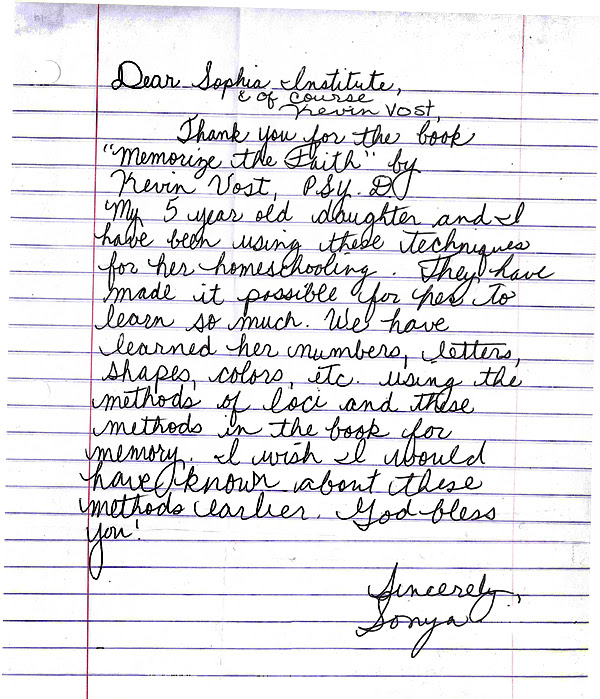 Dear Sophia Institute,
& of course
Kevin Vost,
Thank you for the book
"Memorize the Faith" by
Kevin Vost, P.S.y. D
My 5 year old daughter and I
have been using these techniques
for her homeschooling. They have
made it possible for her to
learn so much. We have
learned her numbers, letters,
shapes, colors, etc. using the
methods of loci and these
methods in the book for
memory. I wish I would
have known about these
methods earlier. God bless
you!
Sincerely,
Sonya